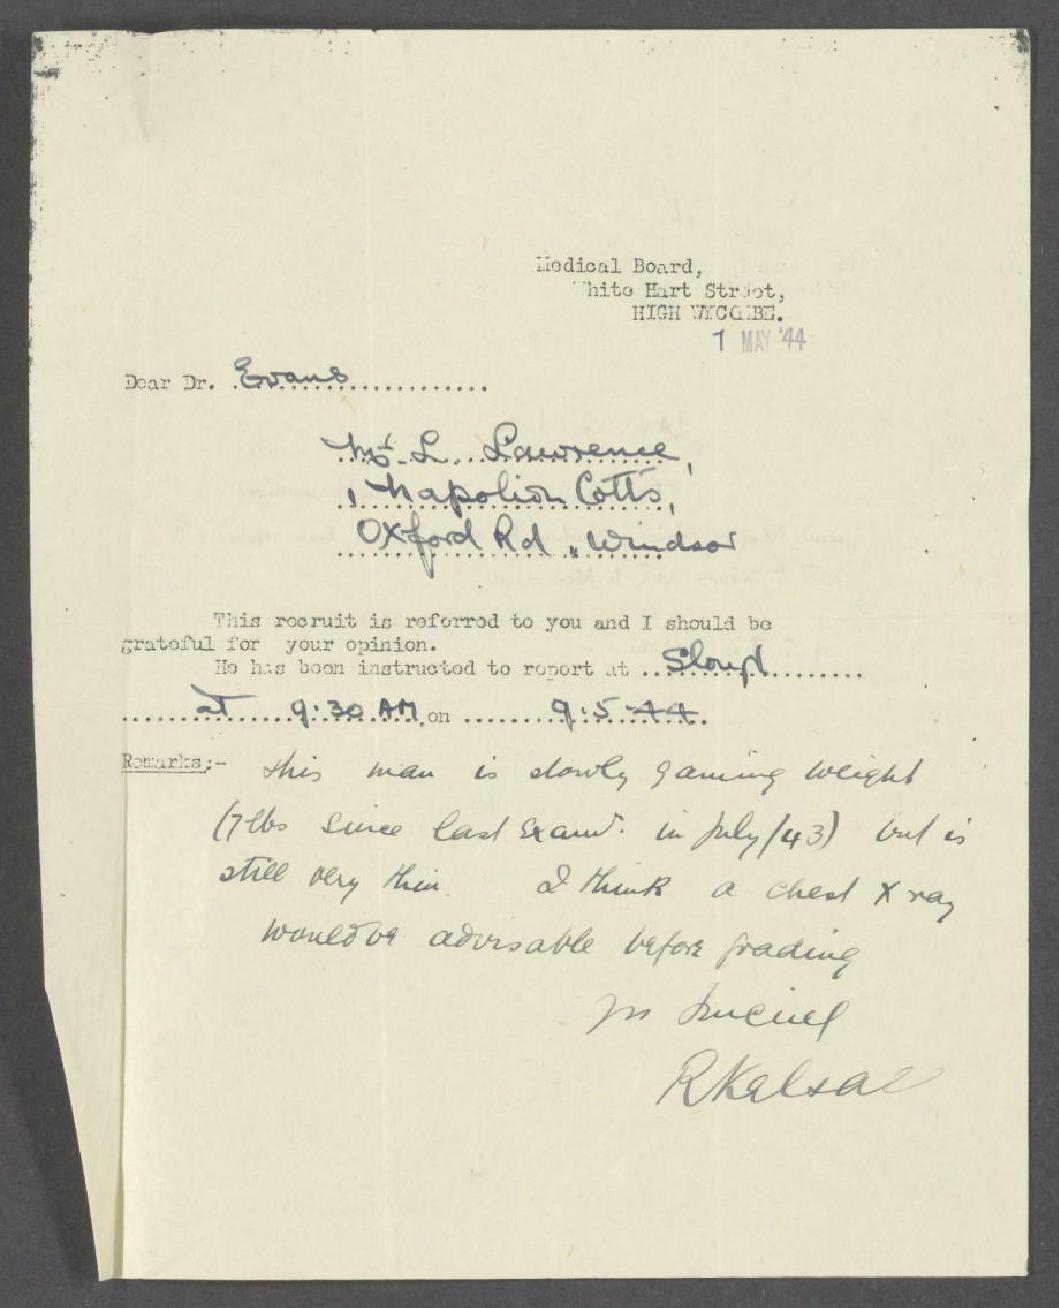 Medical Board,
White Hart Street,
HIGH WYCOMBE.
1 MAY '44
Dear Dr. Evans
Mr. L. Lawrence,
1 Napolion Cotts,
Oxford Rd, Windsor
This recruit is referred to you and I should be
grateful for your opinion.
He has been instructed to report at Slough
at 9:30 AM on 9:5-44.
Remarks:- This man is slowly gaining weight
(7 lbs since last Examn. in July/43) but is
still very thin. I think a chest X ray
would be advisable before grading
R Kelsal